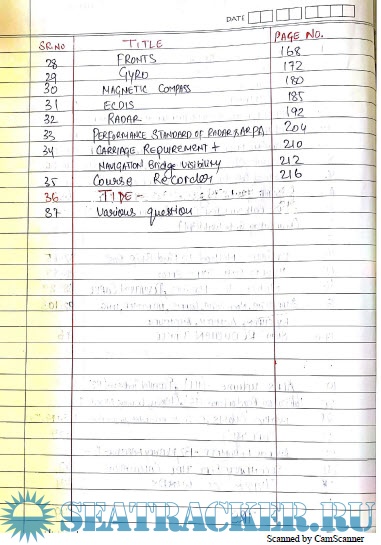 DATE
SR.NO TITLE PAGE NO.
28 FRONTS 168
29 GYRO 172
30 MAGNETIC COMPASS 180
31 ECDIS 185
32 RADAR 192
33 PERFORMANCE STANDARD OF RADAR & ARPA 204
34 CARRIAGE REQUIREMENT + 210
NAVIGATION Bridge Visibility 212
35 Course Recorder 216
36 TIDE -
37 Various question
SEATRACKER.RU
Scanned by CamScanner